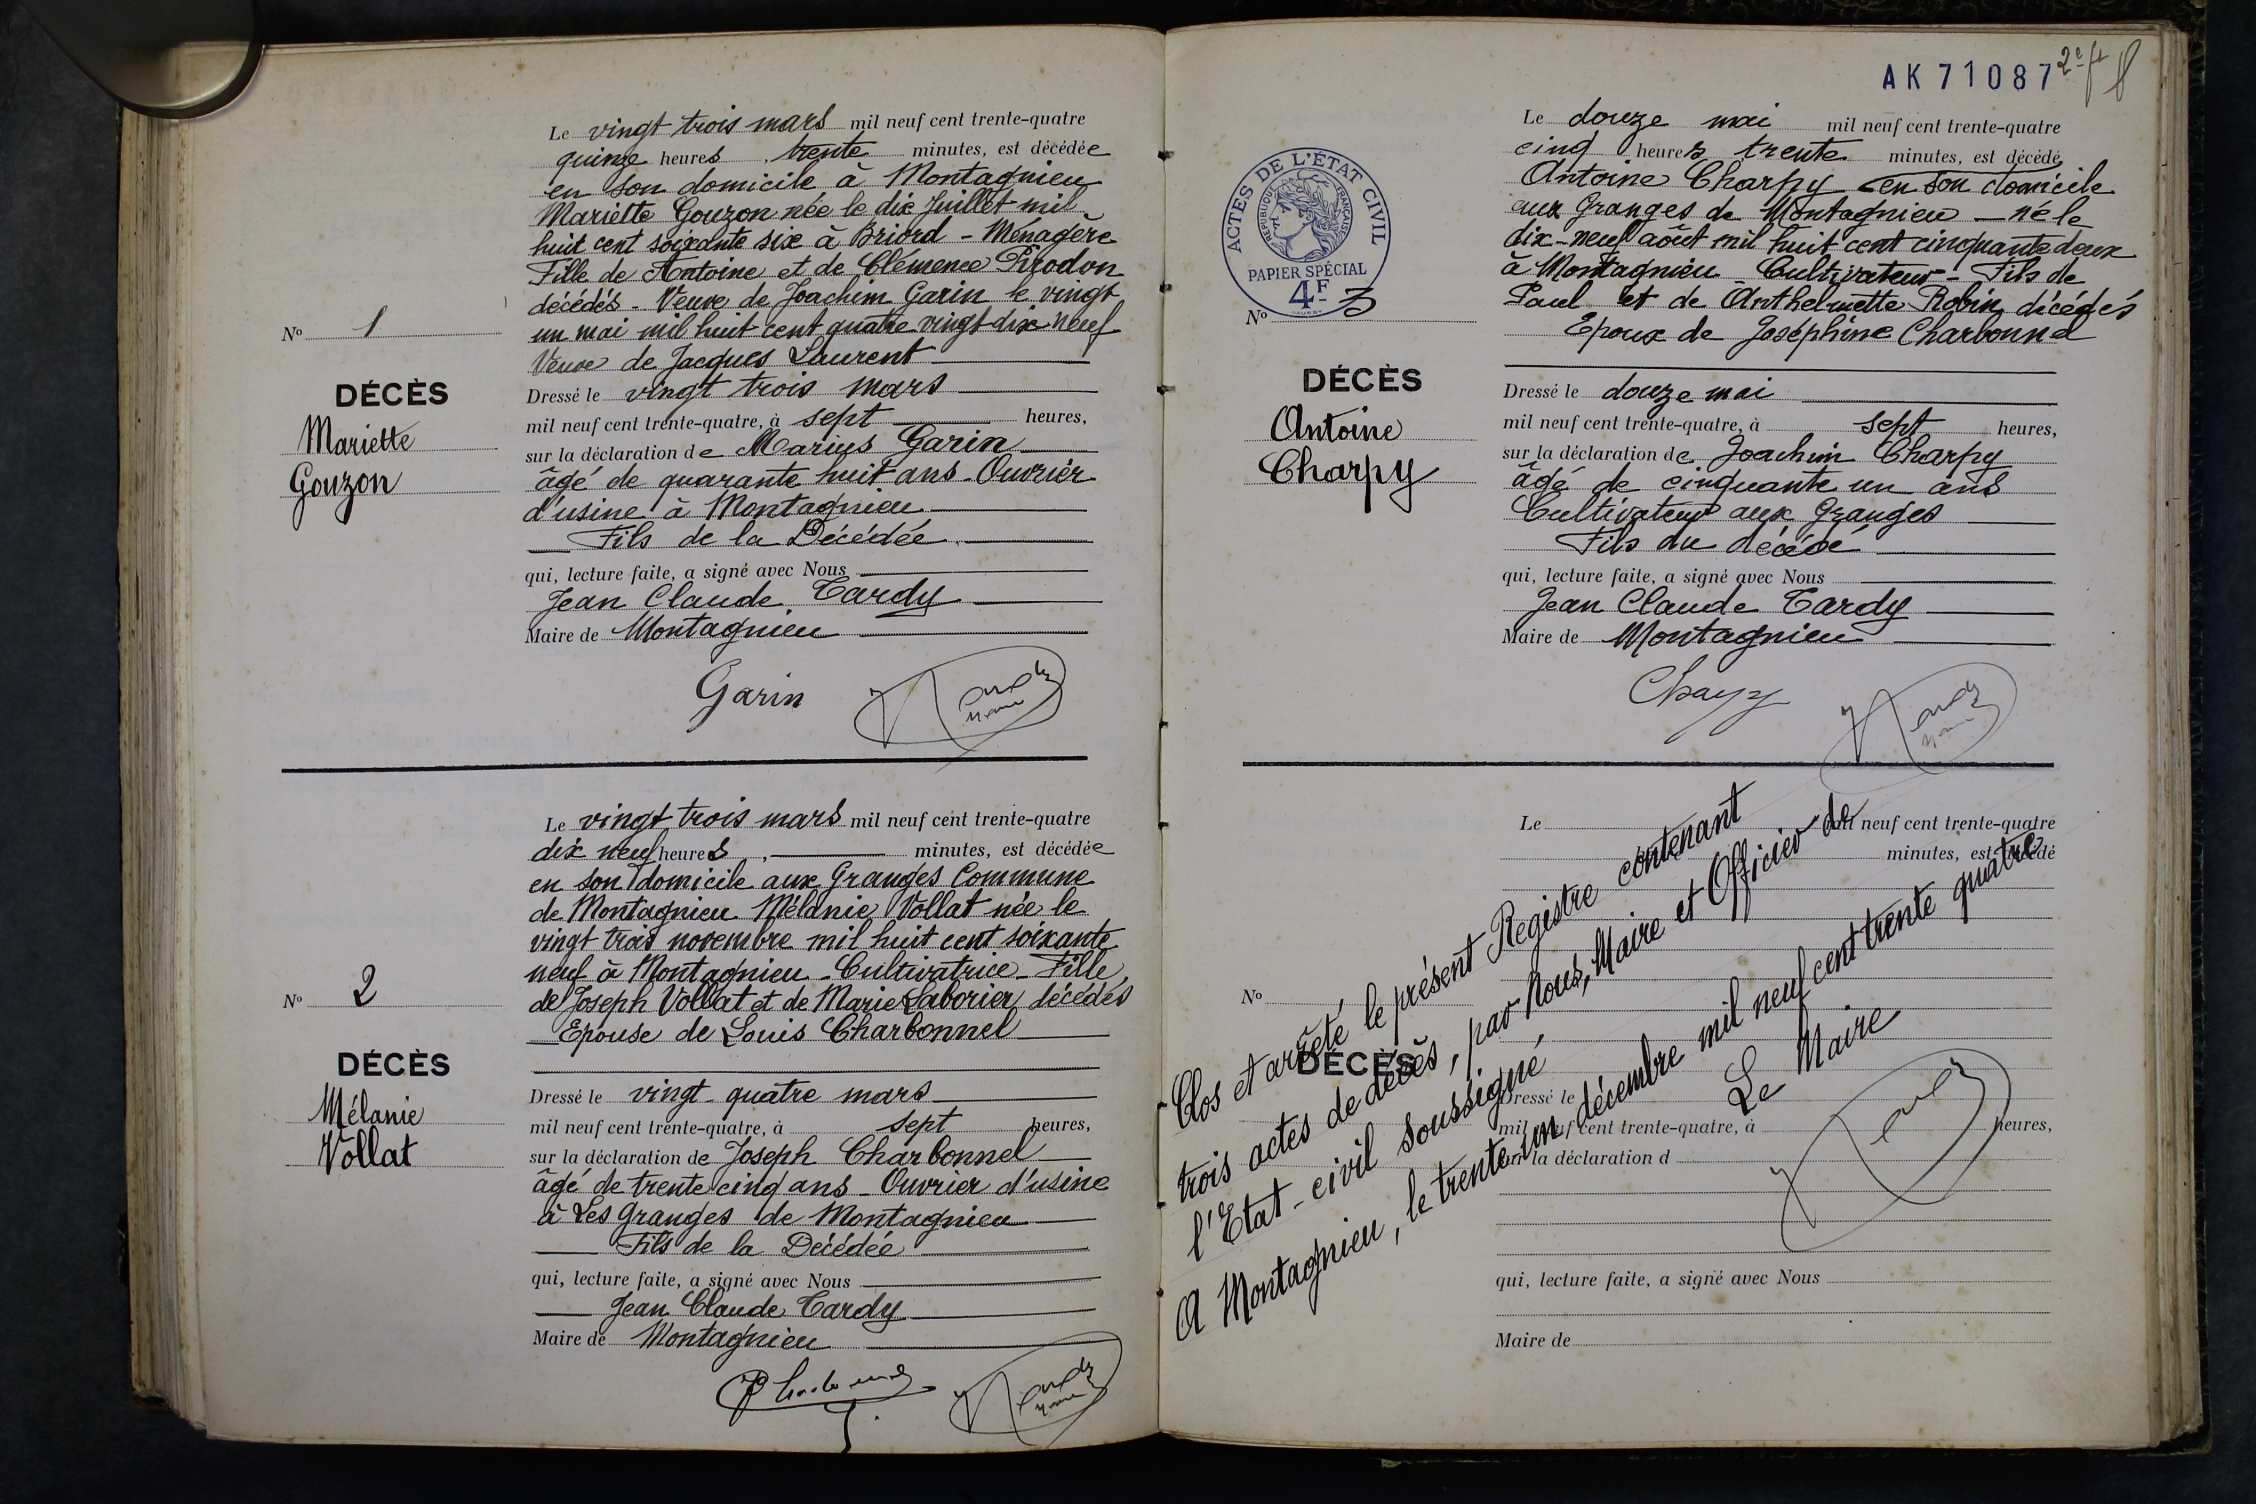 Le vingt trois mars mil neuf cent trente-quatre
quinze heures trente minutes, est décédée
en son domicile à Montagnieu
Mariette Gouzon née le dix Juillet mil
huit cent soixante six à Briord - Ménagère
Fille de Antoine et de Clémence Pirodon
décédés - Veuve de Joachim Garin le vingt
un mai mil huit cent quatre vingt dix neuf
Veuve de Jacques Laurent
Nº 1
DÉCÈS
Mariette
Gouzon
Dressé le vingt trois mars
mil neuf cent trente-quatre, à sept heures,
sur la déclaration de Marius Garin
âgé de quarante huit ans - Ouvrier
d'usine à Montagnieu
Fils de la Décédée
qui, lecture faite, a signé avec Nous
Jean Claude Tardy
Maire de Montagnieu
Garin
Le vingt trois mars mil neuf cent trente-quatre
dix neuf heures minutes, est décédée
en son domicile aux Granges Commune
de Montagnieu Mélanie Vollat née le
vingt trois novembre mil huit cent soixante
neuf à Montagnieu - Cultivatrice - Fille
de Joseph Vollat et de Marie Laborier décédés
Epouse de Louis Charbonnel
Nº 2
DÉCÈS
Mélanie
Vollat
Dressé le vingt quatre mars
mil neuf cent trente-quatre, à sept heures,
sur la déclaration de Joseph Charbonnel
âgé de trente cinq ans - Ouvrier d'usine
à Les Granges de Montagnieu
Fils de la Décédée
qui, lecture faite, a signé avec Nous
Jean Claude Tardy
Maire de Montagnieu
AK 71087
8
Le douze mai mil neuf cent trente-quatre
cinq heures trente minutes, est décédé
Antoine Charpy en son domicile
aux Granges de Montagnieu - né le
dix-neuf août mil huit cent cinquante deux
à Montagnieu - Cultivateur - Fils de
Paul et de Anthelmette Robin décédés
Epoux de Joséphine Charbonnel
ACTES DE L'ÉTAT CIVIL
RÉPUBLIQUE FRANÇAISE
PAPIER SPÉCIAL
4F
Nº 3
DÉCÈS
Antoine
Charpy
Dressé le douze mai
mil neuf cent trente-quatre, à sept heures,
sur la déclaration de Joachim Charpy
âgé de cinquante un ans
Cultivateur aux Granges
Fils du décédé
qui, lecture faite, a signé avec Nous
Jean Claude Tardy
Maire de Montagnieu
Charpy
Le mil neuf cent trente-quatre
minutes, est décédé
Nº
DÉCÈS
Dressé le
mil neuf cent trente-quatre, à heures,
sur la déclaration d
qui, lecture faite, a signé avec Nous
Maire de
Clos et arrêté le présent Registre contenant
trois actes de décès, par Nous, Maire et Officier de
l'Etat-civil soussigné
A Montagnieu, le trente un décembre mil neuf cent trente quatre
Le Maire